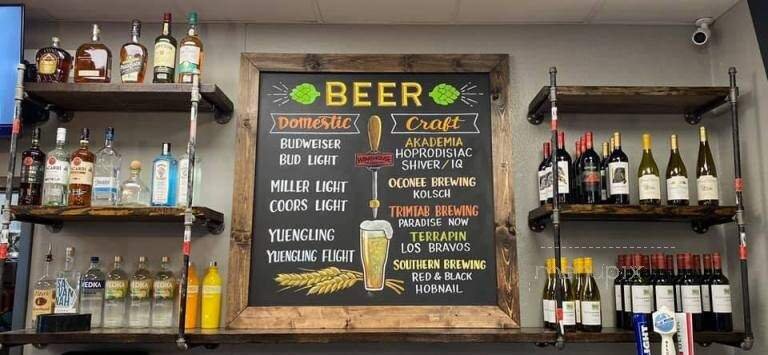 BEER
Domestic
BUDWEISER
BUD LIGHT
MILLER LIGHT
COORS LIGHT
YUENGLING
YUENGLING FLIGHT
Craft
AKADEMIA
HOPRODISIAC
SHIVER/IQ
OCONEE BREWING
KOLSCH
TRIMTAB BREWING
PARADISE NOW
TERRAPIN
LOS BRAVOS
SOUTHERN BREWING
RED & BLACK
HOBNAIL
BACARDI
BACARDI
SAVANNAH
VEDKA
VEDKA
VEDKA
VEDKA
LIGHT